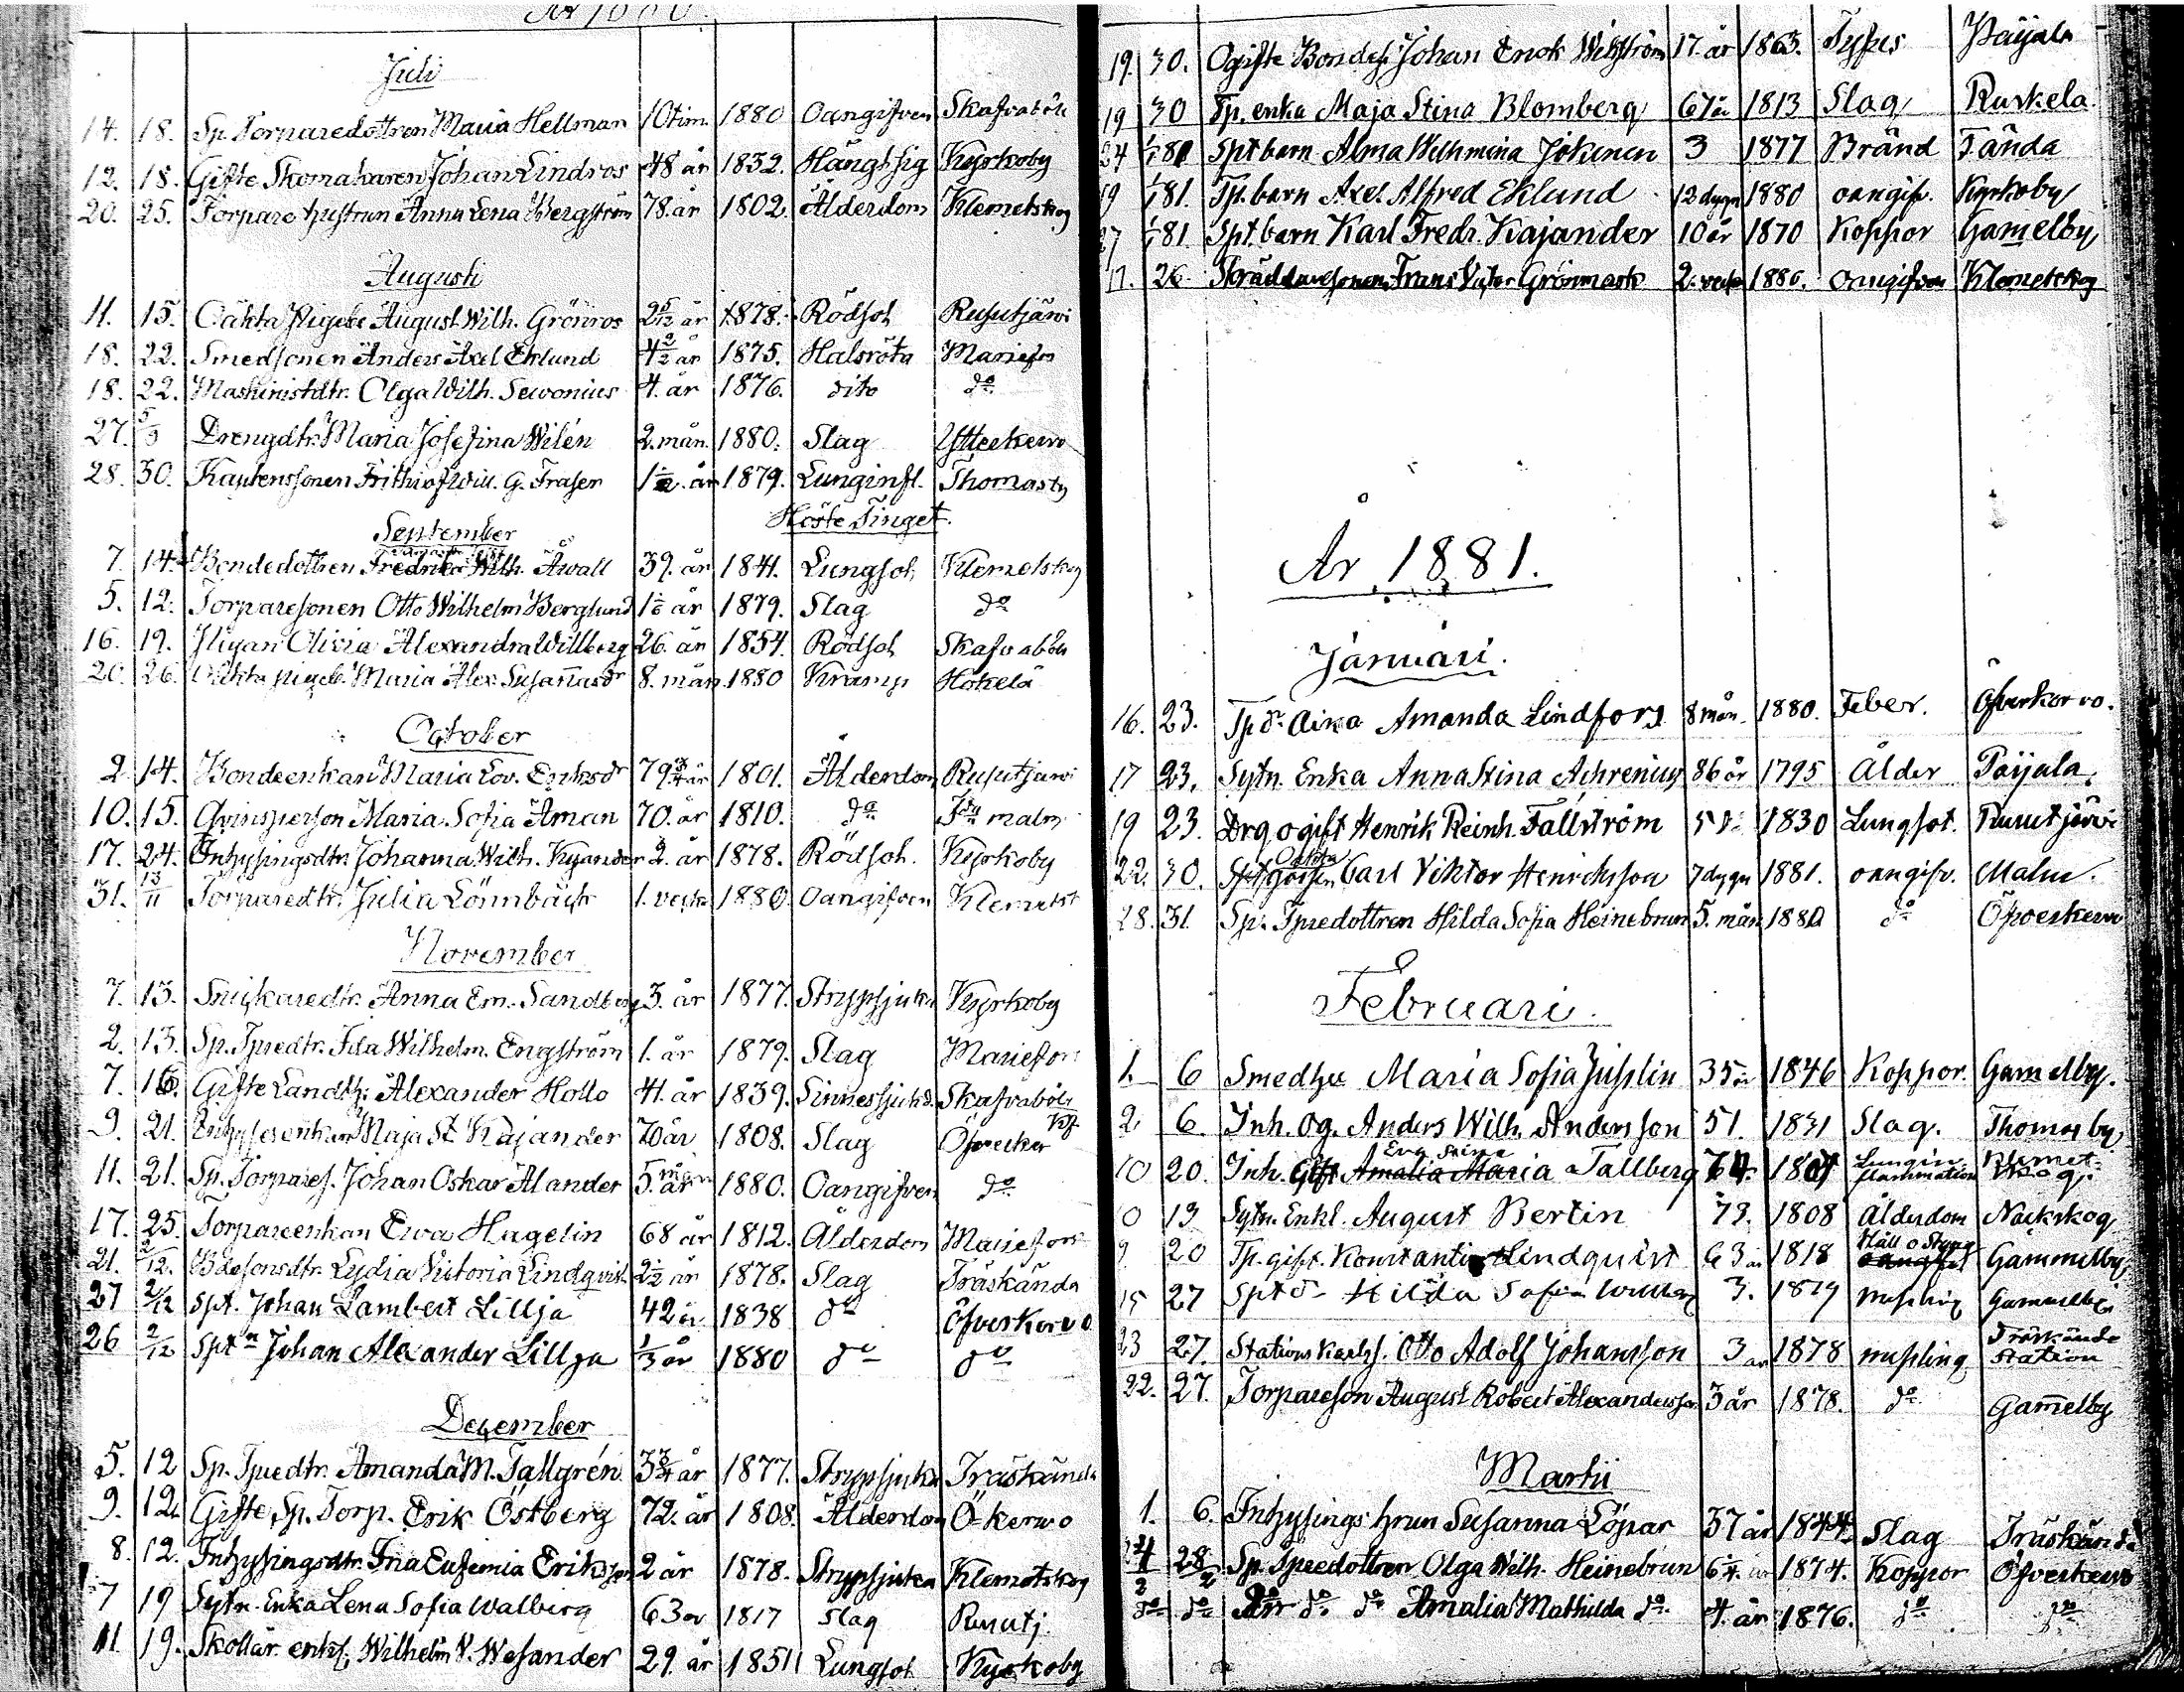 År 1880.
Juli
14. 18. Sp. Torparedottren Maria Hellman 10 tim. 1880 Oangifven Skafvaböle
12. 18. Gifte Skomakaren Johan Lindros 48 år 1832. Hängt sig Kyrkoby
20. 25. Torpare hustrun Anna Lena Bergström 78. år 1802. Ålderdom Klemetskog
Augusti
11. 15. Oäkta Pigebn August Wilh. Grönros 2 5/12 år 1878. Rödsot Rusutjärvi
18. 22. Smedsonen Anders Axel Eklund 4 2/2 år 1875. Halsröta Mariefors
18. 22. Maskinistdtr. Olga Wilh. Sevonius 4. år 1876. dito do
27. 5/9 Drengdtr. Maria Josefina Wilén 2. mån. 1880. Slag Ytterkervo
28. 30. Kaptenssonen Frithiof Will. G. Fraser 1 1/2 år 1879. Lunginfl. Thomasby
September Höste Tinget.
7. 14. Bondedottren Fredrika Wilh. Åvall 39. år 1841. Lungsot Klemetskog
5. 12. Torparesonen Otto Wilhelm Berglund 1 1/6 år 1879. Slag do
16. 19. Pigan Olivia Alexandra Willberg 26. år 1854. Rödsot Skafvaböle
20. 26. Oäkta pigeb. Maria Alex. Susannasdr 8. mån 1880 Kramp Hökelä
October
2. 14. Bondeenkan Maria Lov. Eriksdr 79 3/4 år 1801. Ålderdom Rusutjärvi
10. 15. Qvinsperson Maria Sofia Åman 70. år 1810. do malm
17. 24. Inhysingsdtr. Johanna Wilh. Kyander 2. år 1878. Rödsot. Kyrkoby
31. 13/11 Torparedtr. Julia Lönnbäck 1. vecka 1880. Oangifven Klemetsk
November
7. 13. Snickaredtr. Anna Em. Sandberg 3. år 1877. Strypsjuka Kyrkoby
2. 13. Sp. Tpredtr. Ida Wilhelm. Engström 1. år 1879. Slag Mariefors
7. 16. Gifte Landth. Alexander Hollo 41. år 1839. Sinnessjukd. Skafvaböle
9. 21. Inhysesenkan Maja St. Kajander 70 år 1808. Slag Öfverker
11. 21. Sp. Torpares. Johan Oskar Ålander 5. mån 1880. Oangifven do
17. 25. Torpareenkan Eva Hagelin 68 år 1812. Ålderdom Mariefors
21. 2/12. Bdesonsdtr. Lydia Victoria Lindqvist 2 1/2 år 1878. Slag Träskända
27 2/12 Spt. Johan Lambert Lillja 42 år 1838 do Öfverkervo
26 2/12 Sptn Johan Alexander Lillja 1/3 år 1880 do do
December
5. 12 Sp. Tpredtr. Amanda M. Tallgrén 3 3/4 år 1877. Strypsjuka Träskända
9. 12. Gifte Sp. Torp. Erik Östberg 72. år 1808. Ålderdom Ö-kervo
8. 12. Inhysingsdtr. Ina Eufemia Eriksson 2 år 1878. Strypsjuka Klemetskog
7 19 Sytn. Enka Lena Sofia Walberg 63 år 1817 Slag Rusutj.
11. 19. Skollär. enks. Wilhelm V. Wesander 29. år 1851 Lungsot Kyrkoby
19. 30. Ogifte Bondes. Johan Enok Wikström 17. år 1863. Tyfus Paijala
19 30 Tp. enka Maja Stina Blomberg 67 år 1813 Slag Ruskela
24 1/1 81 Spt barn Alma Wilhmina Jokinen 3 1877 Bränd Tända
19 1/1 81. Tp. barn Axel Alfred Eklund 12 dygn 1880 oangif. Kyrkoby
27 1/1 81 Spt. barn Karl Fredr. Kajander 10 år 1870 Koppor Gamelby
17. 26 Skräddaresonen Frans Victor Grönmark 2. veckor 1880. oangifven Klemetskog
År 1881.
Januari.
16. 23. Tp dr Aina Amanda Lindfors 8 mån. 1880. Feber. Öfverkorvo.
17 23. Sytn. Enka Anna Stina Achrenius 86 år 1795 Ålder Paijala
19 23. Drg ogift Henrik Reinh. Fallström 51 1830 Lungsot. Rusutjärvi
22. 30. Carl Viktor Henriksson 7 dygn 1881. oangifv. Malm.
28. 31. Sp. Tpredottren Hilda Sofia Heinebrun 5. mån 1880 do Öfverkervo
Februari.
1. 6 Smedhu Maria Sofia Juslin 35 år 1846 Koppor. Gamelby.
2 6. Inh. Og. Anders Wilh. Andersson 51. 1831 Slag. Thomasby
10 20. Inh. Gift Amalia Maria Eva Stina Tallberg 74. 1807 Lunginflammation Klemetskog.
10 13 Sytn. Enkl. August Bertin 73. 1808 Ålderdom Näckskog
9 20 Tp. gift. Konstantin Lindquist 63 år 1818 Håll o Styng Gammelby
15 27 Spt dr Hilda Sofia 3. 1879 messling Gammelby
23 27. Stations karls. Otto Adolf Johansson 3 år 1878 messling Träskända Station
22. 27. Torpareson August Robert Alexandersson 3 år 1878. do Gamelby
Martii
1. 6. Inhysings hrun Susanna Löpar 37 år 1844. Slag Träskända
24/2 28/2 Sp. Tpredottren Olga Wilh. Heinebrun 6 1/4 år 1874. Koppor Öfverkervo
do do do do Amalia Mathilda do 4. år 1876. do do